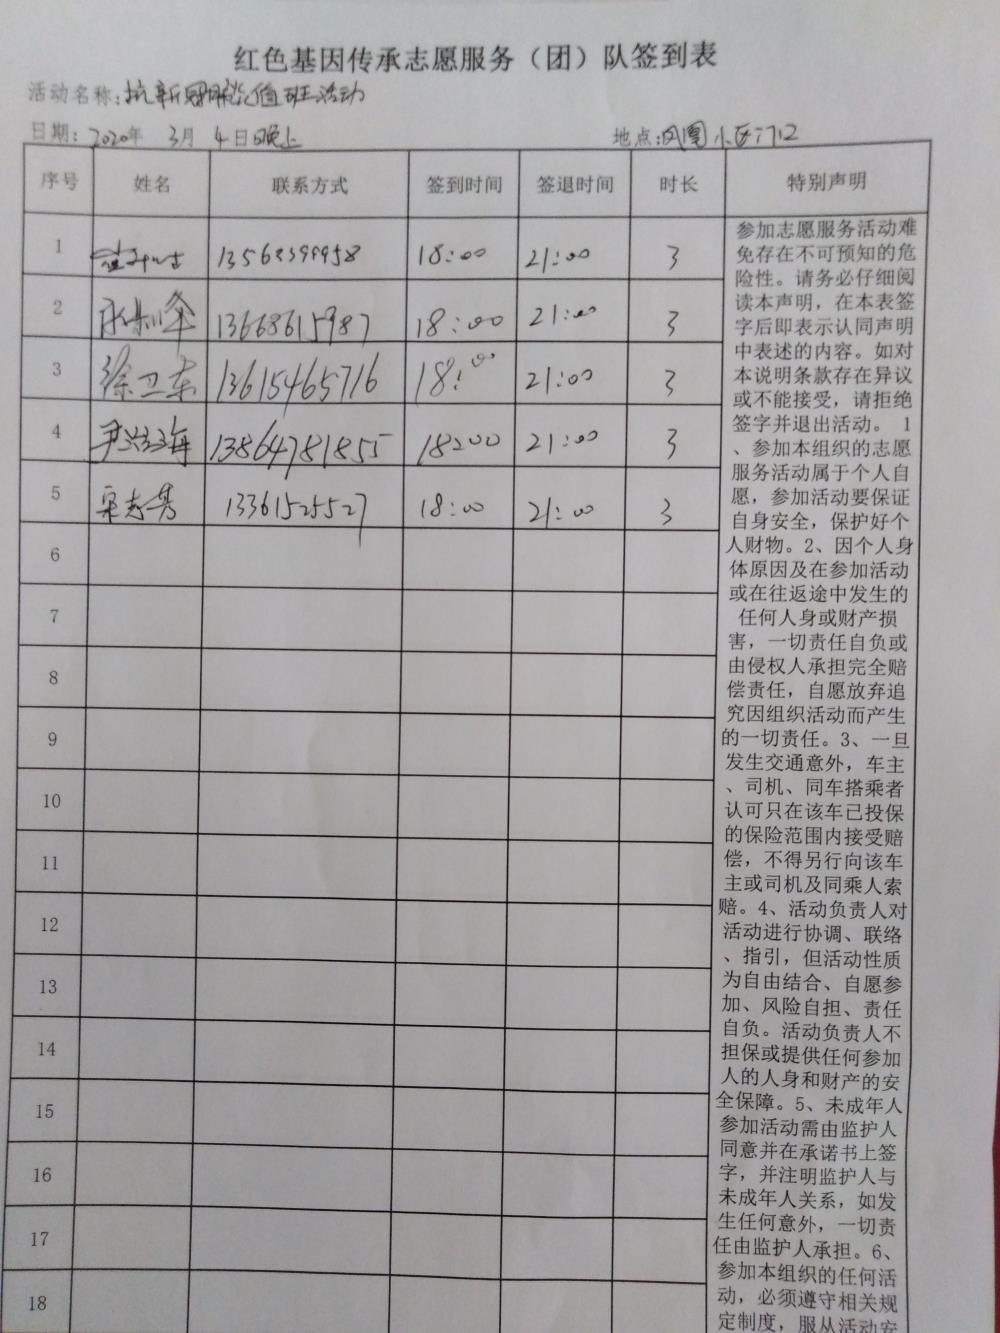 红色基因传承志愿服务（团）队签到表
活动名称：抗新冠肺炎值班活动
日期：2020年 3月 4日晚上 地点：凤凰小区门口
序号 姓名 联系方式 签到时间 签退时间 时长 特别声明
1 13562399958 18:00 21:00 3
2 13668615987 18:00 21:00 3
3 徐卫东 13615465716 18:00 21:00 3
4 尹洪海 13864781855 18:00 21:00 3
5 宋志勇 13361525527 18:00 21:00 3
6
7
8
9
10
11
12
13
14
15
16
17
18
参加志愿服务活动难
免存在不可预知的危
险性。请务必仔细阅
读本声明，在本表签
字后即表示认同声明
中表述的内容。如对
本说明条款存在异议
或不能接受，请拒绝
签字并退出活动。 1
、参加本组织的志愿
服务活动属于个人自
愿，参加活动要保证
自身安全，保护好个
人财物。2、因个人身
体原因及在参加活动
或在往返途中发生的
任何人身或财产损
害，一切责任自负或
由侵权人承担完全赔
偿责任，自愿放弃追
究因组织活动而产生
的一切责任。3、一旦
发生交通意外，车主
、司机、同车搭乘者
认可只在该车已投保
的保险范围内接受赔
偿，不得另行向该车
主或司机及同乘人索
赔。4、活动负责人对
活动进行协调、联络
、指引，但活动性质
为自由结合、自愿参
加、风险自担、责任
自负。活动负责人不
担保或提供任何参加
人的人身和财产的安
全保障。5、未成年人
参加活动需由监护人
同意并在承诺书上签
字，并注明监护人与
未成年人关系，如发
生任何意外，一切责
任由监护人承担。6、
参加本组织的任何活
动，必须遵守相关规
定制度，服从活动安